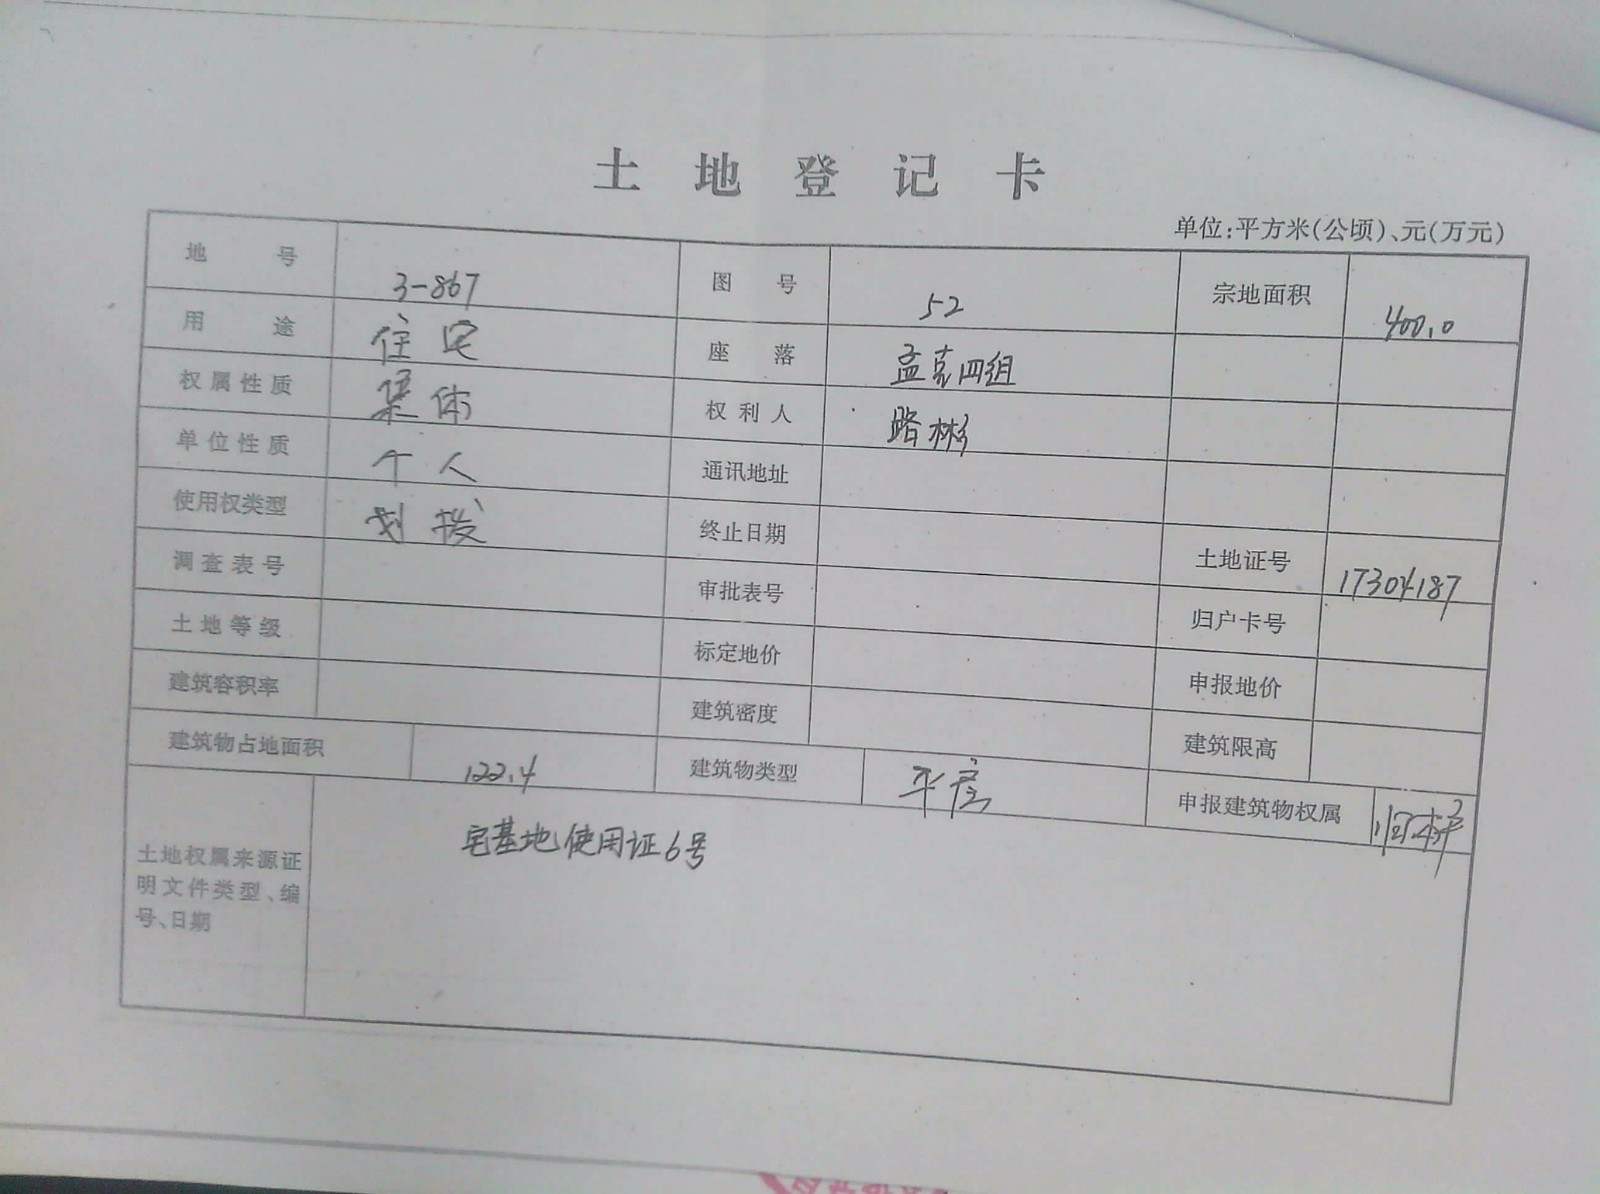 土地登记卡
单位:平方米(公顷)、元(万元)
地号 3-867 图号 52 宗地面积 400.0
用途 住宅 座落 孟克四组
权属性质 集体 权利人 路彬
单位性质 个人 通讯地址
使用权类型 划拨 终止日期 土地证号 17304187
调查表号 审批表号 归户卡号
土地等级 标定地价 申报地价
建筑容积率 建筑密度 建筑限高
建筑物占地面积 122.4 建筑物类型 平房 申报建筑物权属
土地权属来源证 宅基地使用证6号
明文件类型、编
号、日期